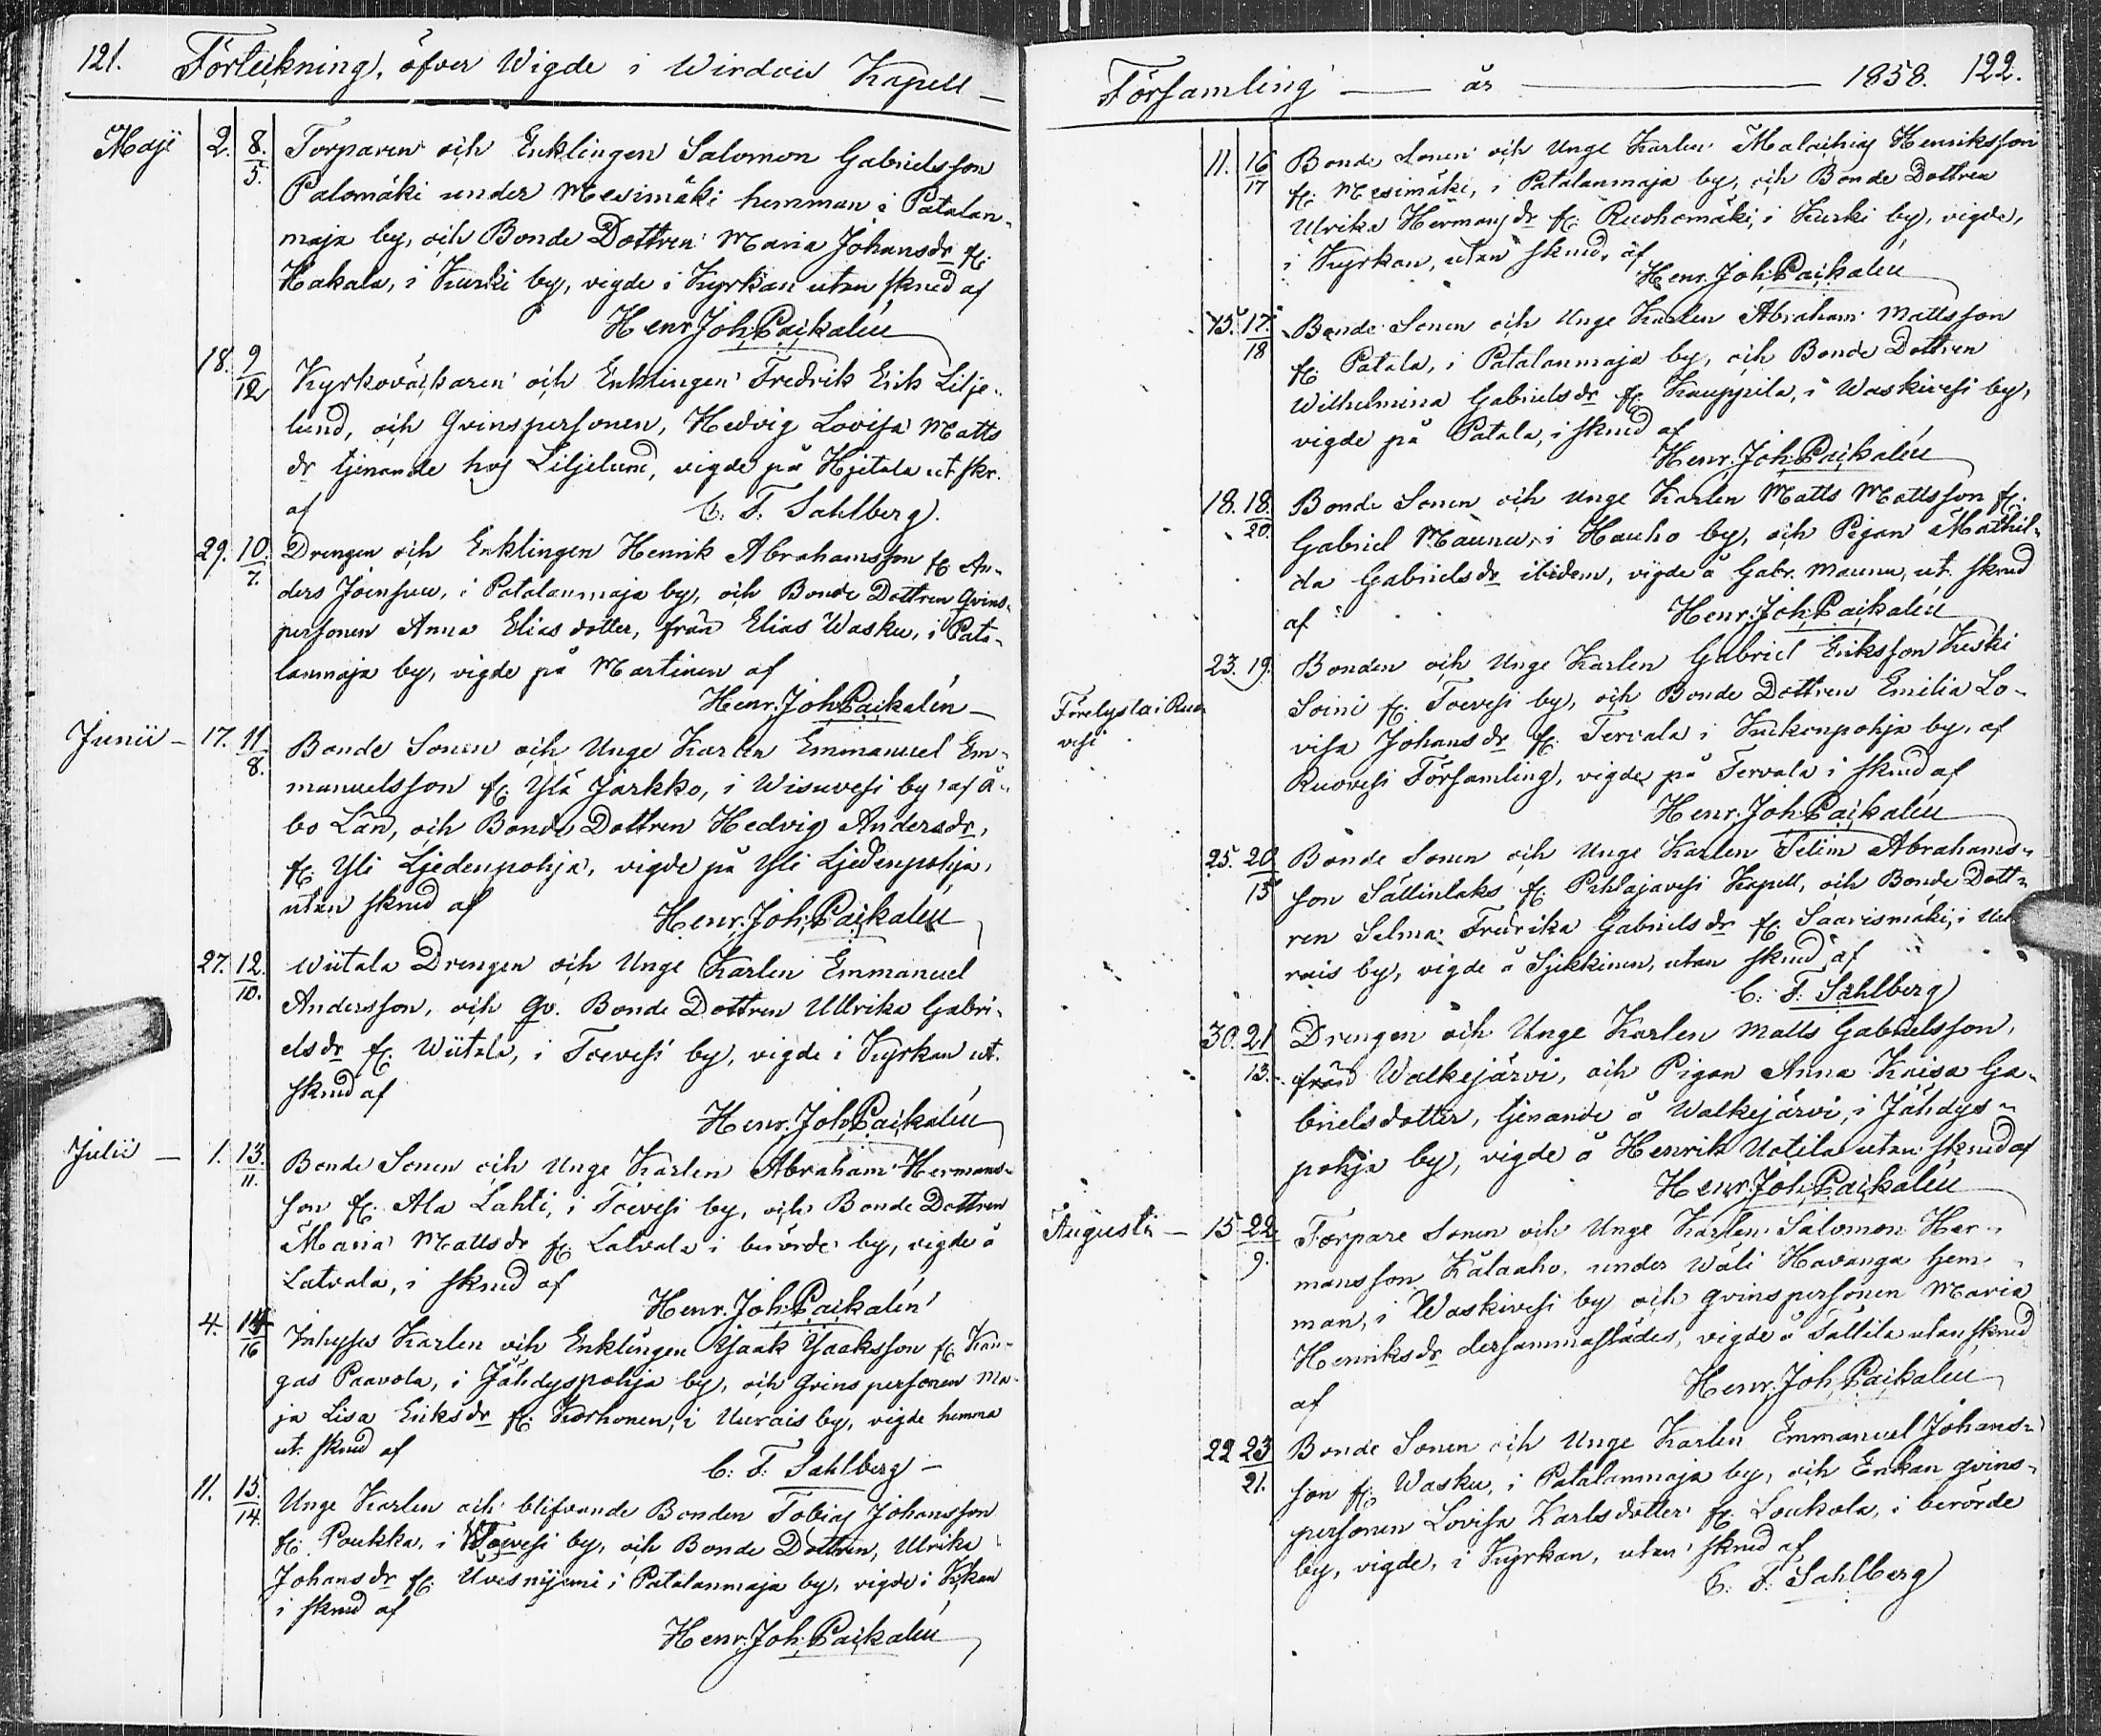 121. Förteckning, öfver Wigde i Wirdois Kapell
Maji 2. 8./5. Torparen och Enklingen Salomon Gabrielsson
Palomäki under Mesimäki hemman i Patalan-
maja by, och Bonde Dottren Maria Johansdr fr.
Hakala, i Kurki by, vigde i Kyrkan utan skrud af
Henr. Joh. Paikalén
18. 9/12 Kyrkoväktaren och Enklingen Fredrik Erik Lilje-
lund, och Qvinspersonen, Hedvig Lovisa Matts
dr tjenande hos Liljelund, vigde på Hjitala ut skr.
af C. F. Sahlberg.
29. 10./7. Drengen och Enklingen Henrik Abrahamsson fr An-
ders Joensuu, i Patalanmaja by, och Bonde Dottren Qvins-
personen Anna Elias dotter, från Elias Wasku, i Pata-
lanmaja by, vigde på Martinen af
Henr. Joh. Paikalén
Junii 17. 11/8. Bonde Sonen och Unge Karlen Emmanuel Em-
manuelsson fr. Ylä Jarkko, i Wisuvesi by af Å-
bo Län, och Bonde Dottren Hedvig Andersdr,
fr. Yli Ljedenpohja, vigde på Yli Ljedenpohja,
utan skrud af Henr. Joh. Paikalén
27. 12./10. Wiitala Drengen och Unge Karlen Emmanuel
Andersson, och Qv. Bonde Dottren Ullrika Gabri-
elsdr fr. Wiitala, i Toevesi by, vigde i Kyrkan ut.
skrud af
Henr. Joh. Paikalén
Julii 1. 13./11. Bonde Sonen och Unge Karlen Abraham Hermans-
son fr. Ala Lahti, i Toevesi by, och Bonde Dottren
Maria Mattsdr fr. Latvala i berörde by, vigde å
Latvala, i skrud af
Henr. Joh. Paikalén
4. 14/16 Inhyses Karlen och Enklingen Isaak Isaaksson fr. Kan-
gas Paavola, i Jähdyspohja by, och Qvinspersonen Ma-
ja Lisa Eriksdr fr. Korhonen, i Uurais by, vigde hemma
ut. skrud af
C. F. Sahlberg
11. 15./14. Unge Karlen och blifvande Bonden Tobias Johansson
fr. Poukka, i Toevesi by, och Bonde Dottren, Ulrika
Johansdr fr. Uvesnijemi i Patalanmaja by, vigde i Kykan
i skrud af
Henr. Joh. Paikalén
Församling år 1858. 122.
11. 16/17 Bonde Sonen och Unge Karlen Malachias Henriksson
fr. Mesimäki, i Patalanmaja by, och Bonde Dottren
Ulrika Hermansdr fr. Ruohomäki, i Kurki by, vigde,
i Kyrkan, utan skrud, af
Henr. Joh. Paikalén
15. 17./18 Bonde Sonen och Unge Karlen Abraham Mattsson
fr. Patala, i Patalanmaja by, och Bonde Dottren
Wilhelmina Gabrielsdr fr. Kauppila, i Waskivesi by,
vigde på Patala, i skrud af
Henr. Joh. Paikalén
18. 18./20. Bonde Sonen och Unge Karlen Matts Mattsson fr.
Gabriel Maunu, i Hauho by, och Pigan Mathil-
da Gabrielsdr ibidem, vigde å Gabr. Maunu, ut. skrud
af Henr. Joh. Paikalén
23. 19. Bonden och Unge Karlen Gabriel Eriksson Keski
Soini fr. Toevesi by, och Bonde Dottren Emilia Lo-
Förelysta i Ruo-
vesi
visa Johansdr fr. Tervala i Kukonpohja by, af
Ruovesi Församling, vigde på Tervala i skrud af
Henr. Joh. Paikalén
25. 20/15 Bonde Sonen och Unge Karlen Felim Abrahams-
son Sällinlaks fr. Pihlajavesi Kapell, och Bonde Dott-
ren Selma Fredrika Gabrielsdr fr. Saarismäki, i Uu
rais by, vigde å Sjikkinen, utan skrud af
C. F. Sahlberg
30. 21/13. Drengen och Unge Karlen Matts Gabrielsson,
från Walkejärvi, och Pigan Anna Kaisa Ga-
brielsdotter, tjenande å Walkejärvi, i Jähdys-
pohja by, vigde å Henrik Uotila utan skrud af
Henr. Joh. Paikalén
Augusti 15 22/9. Torpare Sonen och Unge Karlen Salomon Her-
mansson Kalaaho, under Wäli Havanga hem-
man, i Waskivesi by och qvinspersonen Maria
Henriksdr dersammastädes, vigde å Tallila utan skrud
af Henr. Joh. Paikalén
22 23/21. Bonde Sonen och Unge Karlen Emmanuel Johans-
son fr. Wasku, i Patalanmaja by, och Enkan qvins-
personen Lovisa Karlsdotter fr. Loukola, i berörde
by, vigde, i Kyrkan, utan skrud af
C. F. Sahlberg